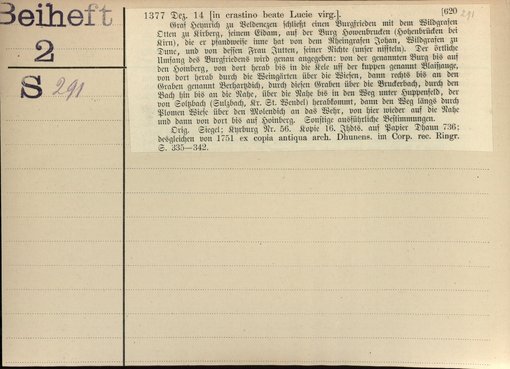 Beiheft
2
S 291
[620
291
1377 Dez. 14 [in crastino beate Lucie virg.].
Graf Heinrich zu Veldenczen schließt einen Burgfrieden mit dem Wildgrafen
Otten zu Kirberg, seinem Eidam, auf der Burg Howenbrucken (Hohenbrücken bei
Kirn), die er pfandweise inne hat von dem Rheingrafen Johan, Wildgrafen zu
Dune, und von dessen Frau Jutten, seiner Nichte (unser nifteln). Der örtliche
Umfang des Burgfriedens wird genau angegeben: von der genannten Burg bis auf
den Hoinberg, von dort herab bis in die Kele uff der kuppen genannt
von dort herab durch die Weingärten über die Wiesen, dann rechts bis an den
Graben genannt Berhartzdich, durch diesen Graben über die Bruckerbach, durch den
Bach hin bis an die Nahe, über die Nahe bis in den Weg unter Huppenfeld, der
von Soltzbach (Sulzbach, Kr. St. Wendel) herabkommt, dann den Weg längs durch
Plomen Wiese über den Molendich an das Wehr, von hier wieder auf die Nahe
und dann von dort bis auf Hoinberg. Sonstige ausführliche Bestimmungen.
Orig. Siegel; Kyrburg Nr. 56. Kopie 16. Jhdts. auf Papier Dhaun 736;
desgleichen von 1751 ex copia antiqua arch. Dhunens. im Corp. rec. Ringr.
S. 335—342.